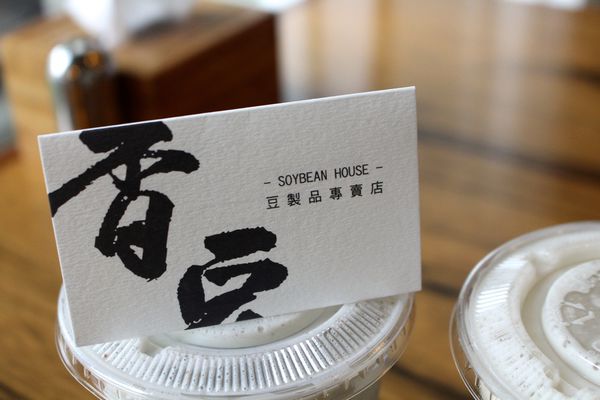 香豆
- SOYBEAN HOUSE -
豆製品專賣店